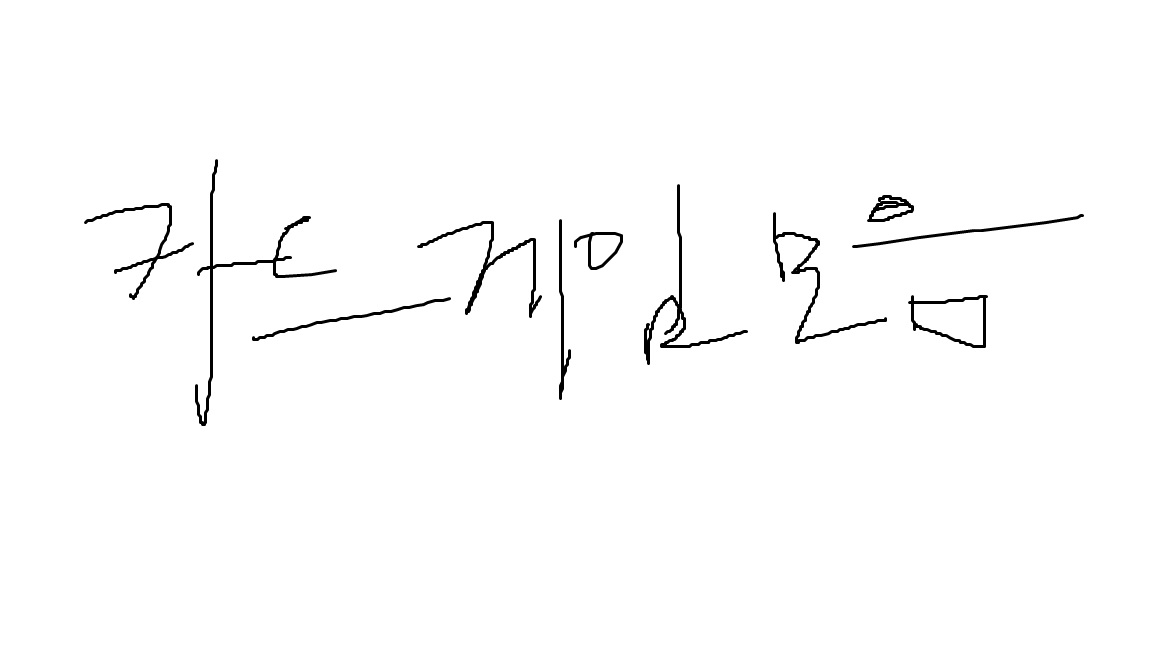 카드게임모음